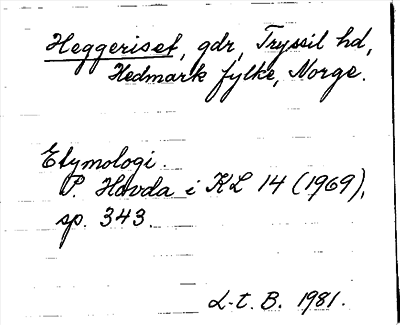 Heggeriset, gdr, Tryssil hd,
Hedmark fylke, Norge.
Etymologi.
P. Hovda i KL 14 (1969),
sp. 343.
L-t. B. 1981.